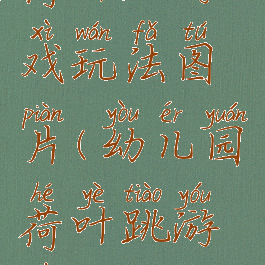 xì wán fǎ tú
戏玩法图
piàn yòu ér yuán
片(幼儿园
hé yè tiào yóu
荷叶跳游